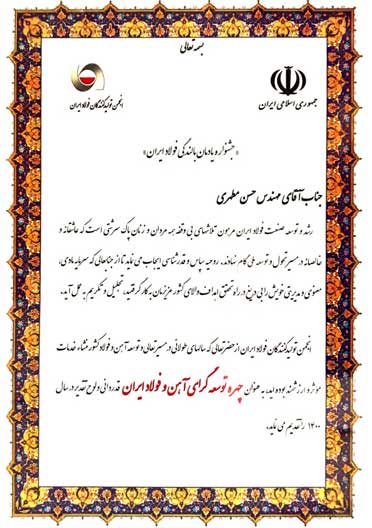 بسمه تعالی
انجمن تولیدکنندگان فولاد ایران
جمهوری اسلامی ایران
«جشنواره یادمان بالندگی فولاد ایران»
جناب آقای مهندس حسن مطهری
رشد و توسعه صنعت فولاد ایران مرهون تلاشهای بی وقفه همه مردان و زنان پاک سرشتی است که عاشقانه و
خالصانه در مسیر تحول و توسعه ملی گام نهادند. روحیه سپاس و قدرشناسی ایجاب می نماید تا از جنابعالی که سرمایه مادی،
معنوی و مدیریتی خویش را بی دریغ در راه تحقق اهداف والای کشور عزیزمان به کار گرفتید، تجلیل و تکریم به عمل آید.
انجمن تولیدکنندگان فولاد ایران از حضرتعالی که سالهای طولانی در مسیر تعالی و توسعه آهن و فولاد کشور منشاء خدمات
موثر و ارزشمند بوده اید، به عنوان چهره توسعه گرای آهن و فولاد ایران قدردانی و لوح تقدیر در سال
۱۴۰۰ را تقدیم می نماید.